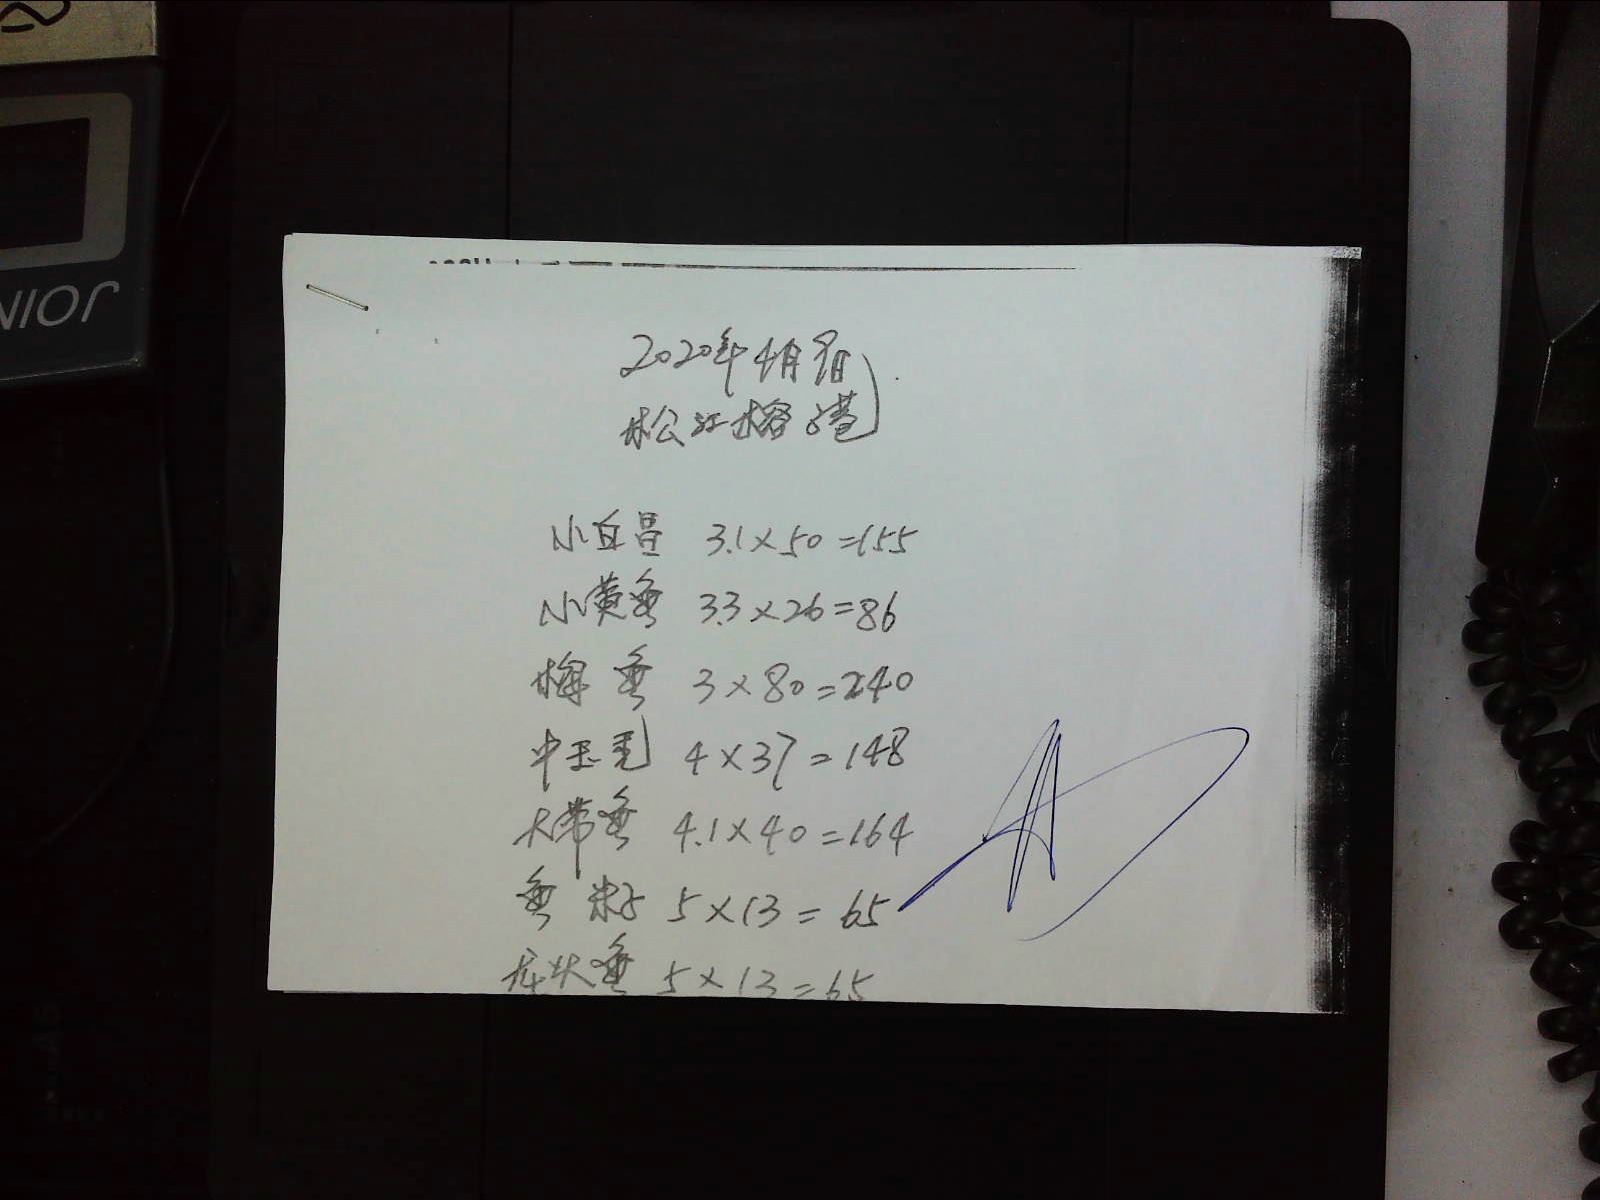 2020年4月
松江榕港
小白 3.1×50=155
小黄鱼 3.3×26=86
梅鱼 3×80=240
中 4×37=148
大带鱼 4.1×40=164
鱼 5×13=65
鱼 5×13=65
JOIN